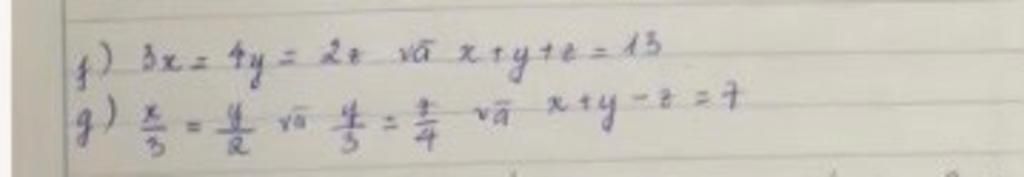 f) 3x = 4y = 2z và x + y + z = 13
g) x/3 = y/2 và y/3 = z/4 và x + y - z = 7